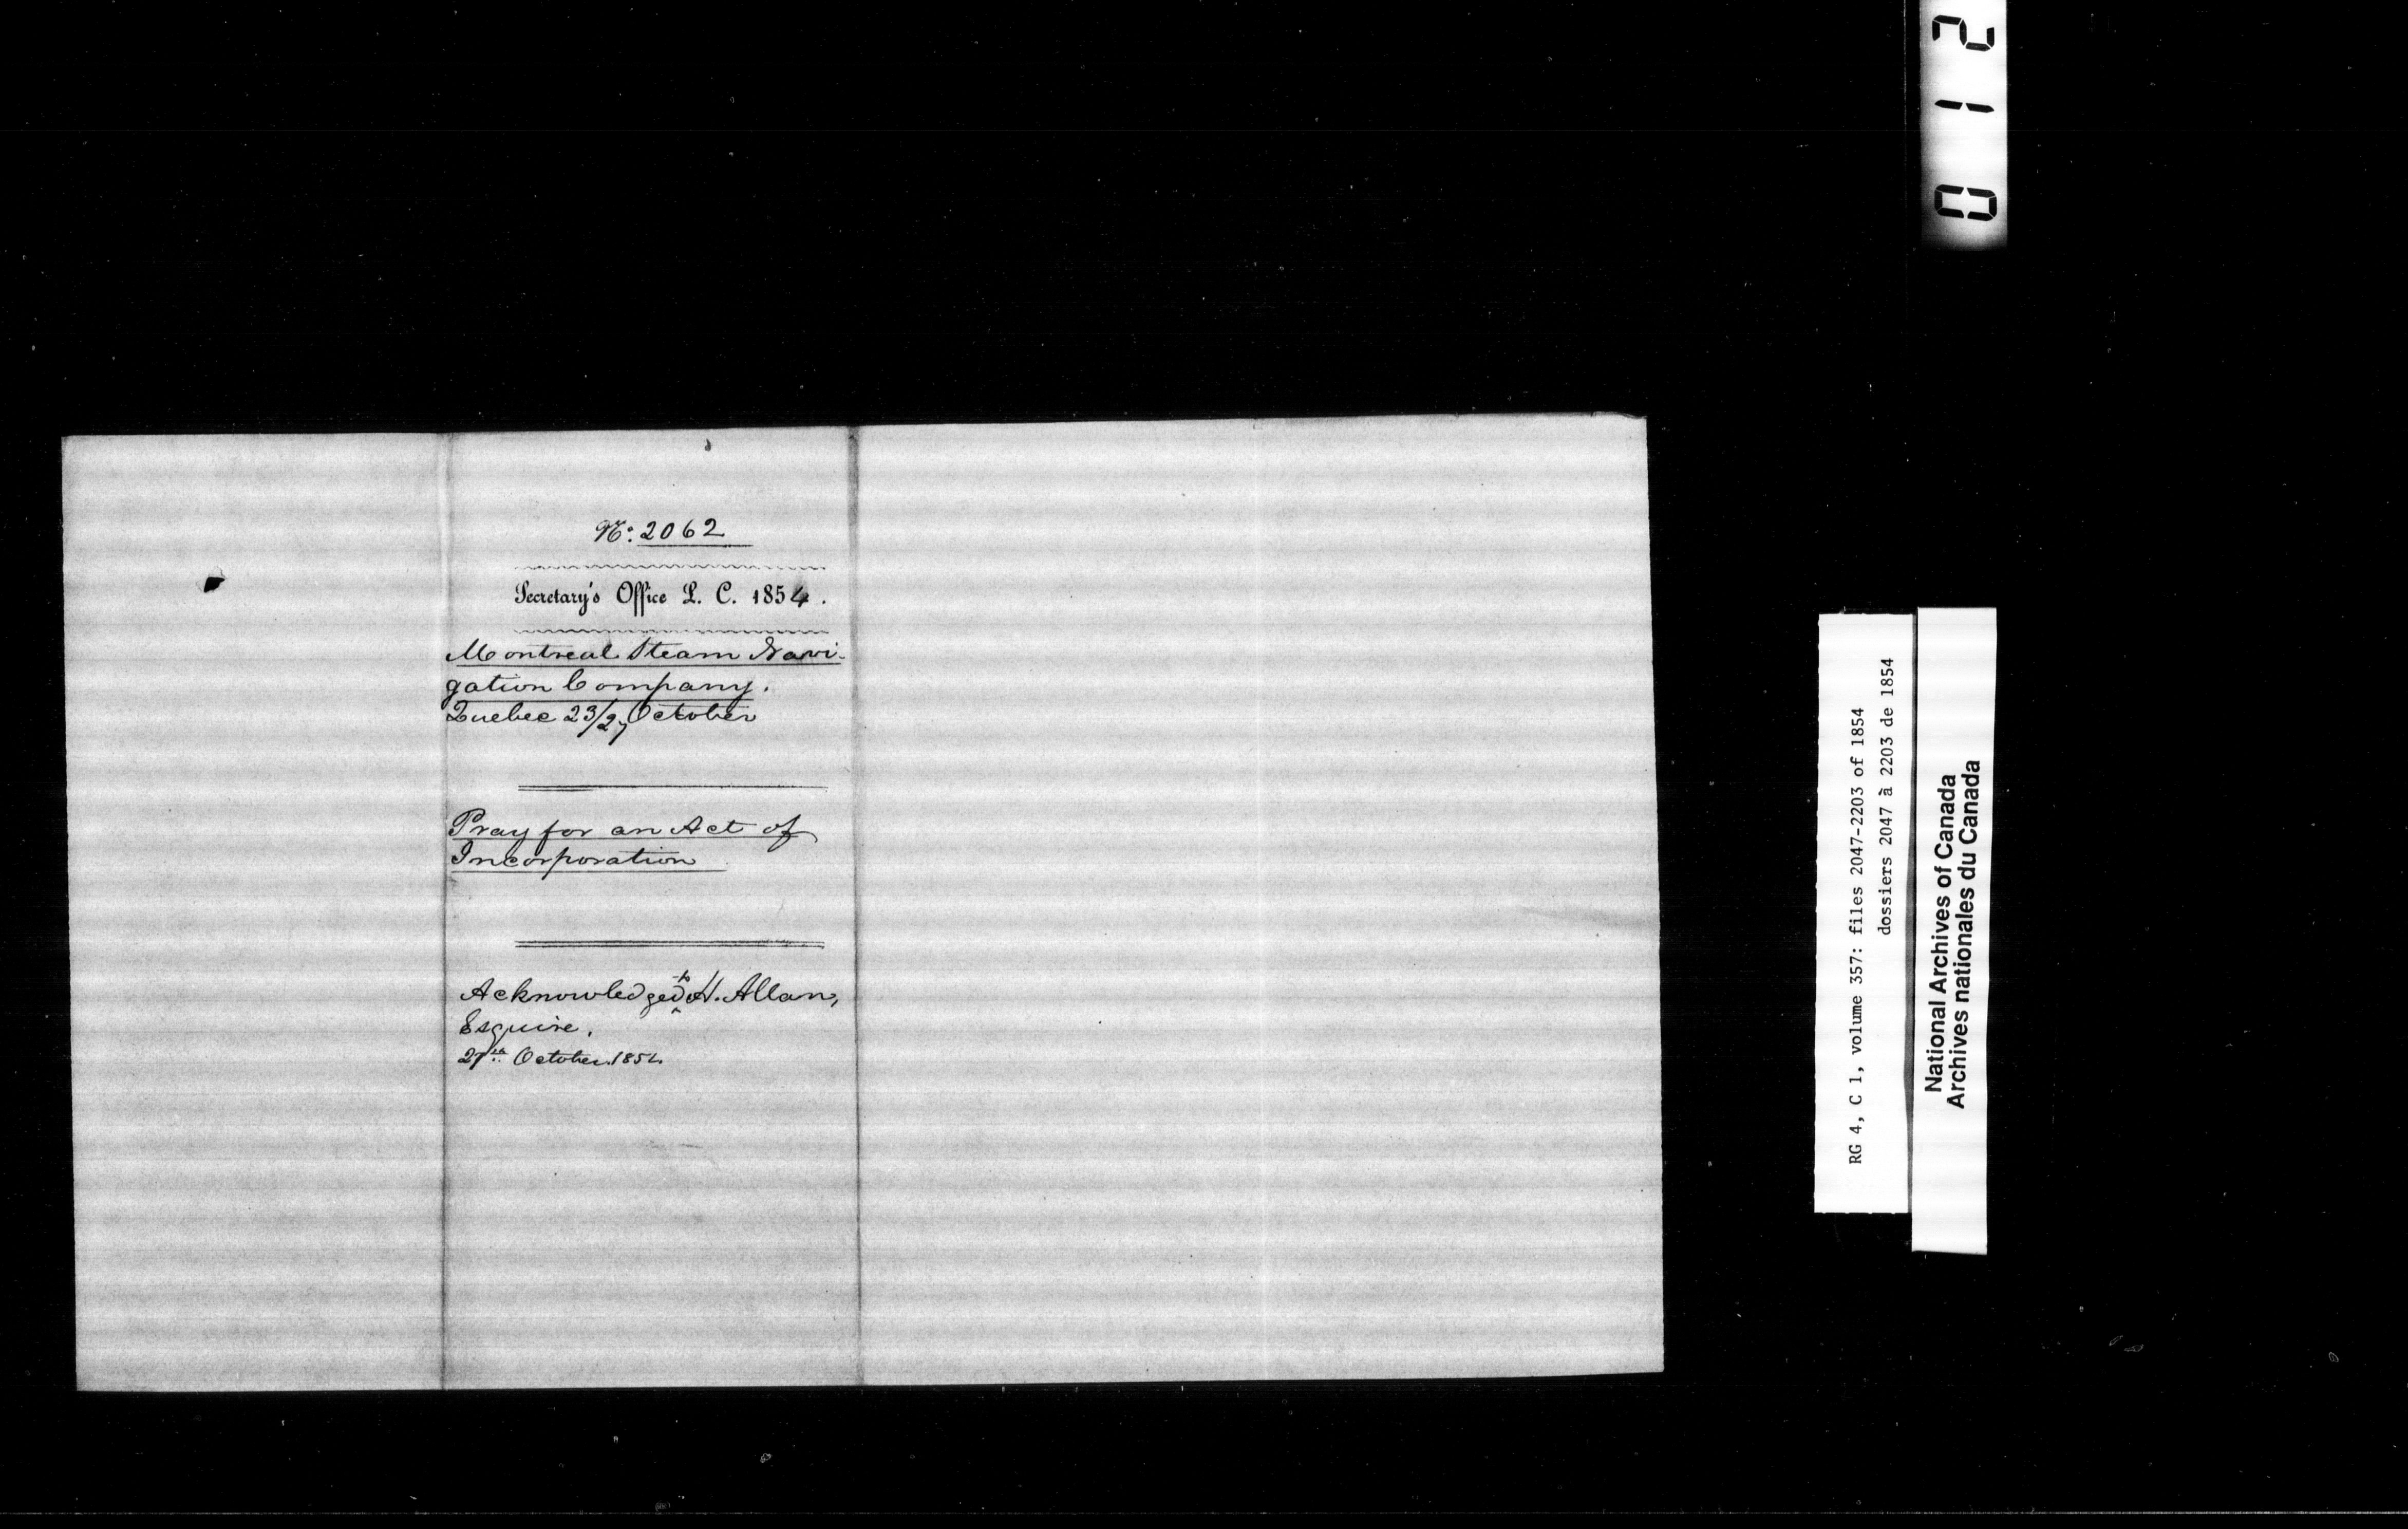 No. 2062
Secretary's Office L. C. 1854.
Montreal Steam Navi-
gation Company.
Quebec 23/27 October
Pray for an Act of
Incorporation
Acknowledged to H. Allan,
Esquire.
27th October. 1854
RG 4, C 1, volume 357: files 2047-2203 of 1854
dossiers 2047 à 2203 de 1854
National Archives of Canada
Archives nationales du Canada
012